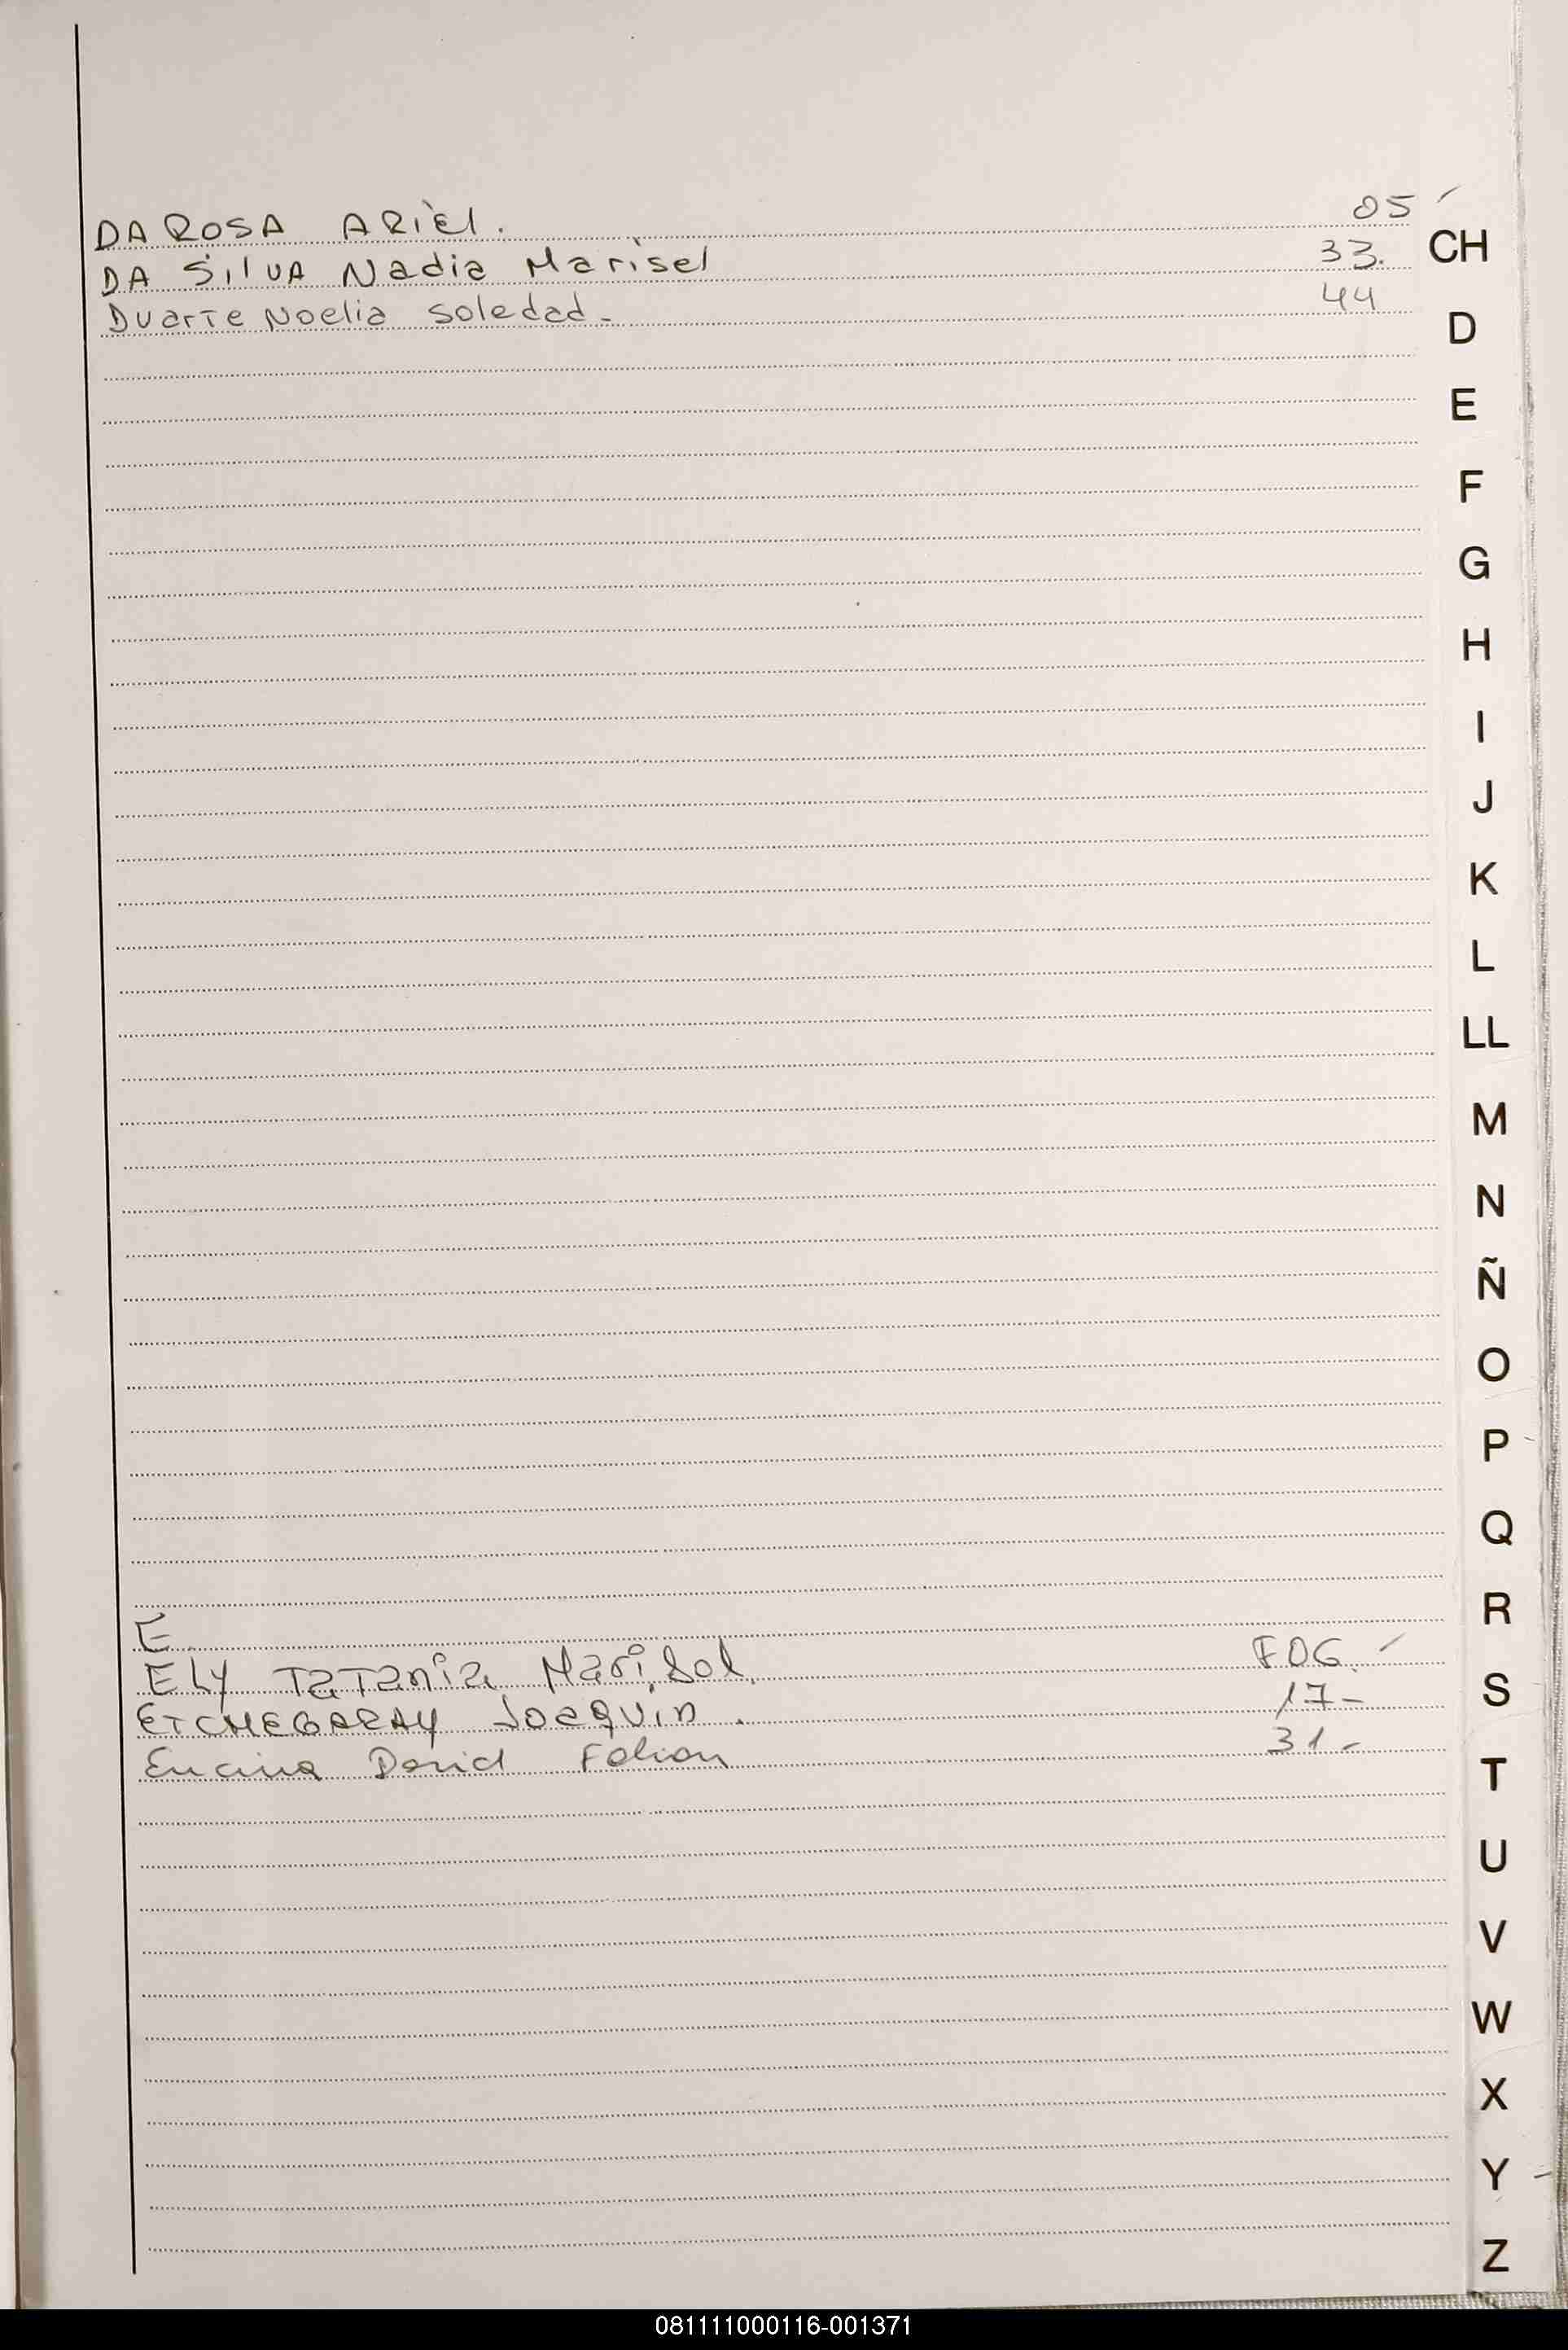 DA ROSA ARiel. 05
DA SilVA Nadia Marisel 33.
Duarte Noelia Soledad - 44
E
ELY TaTania Marisol. F06.
ETCHEGARAY Joaquin. 17-
Encina David Fabian 31-
CH
D
E
F
G
H
I
J
K
L
LL
M
N
Ñ
O
P
Q
R
S
T
U
V
W
X
Y
Z
081111000116-001371